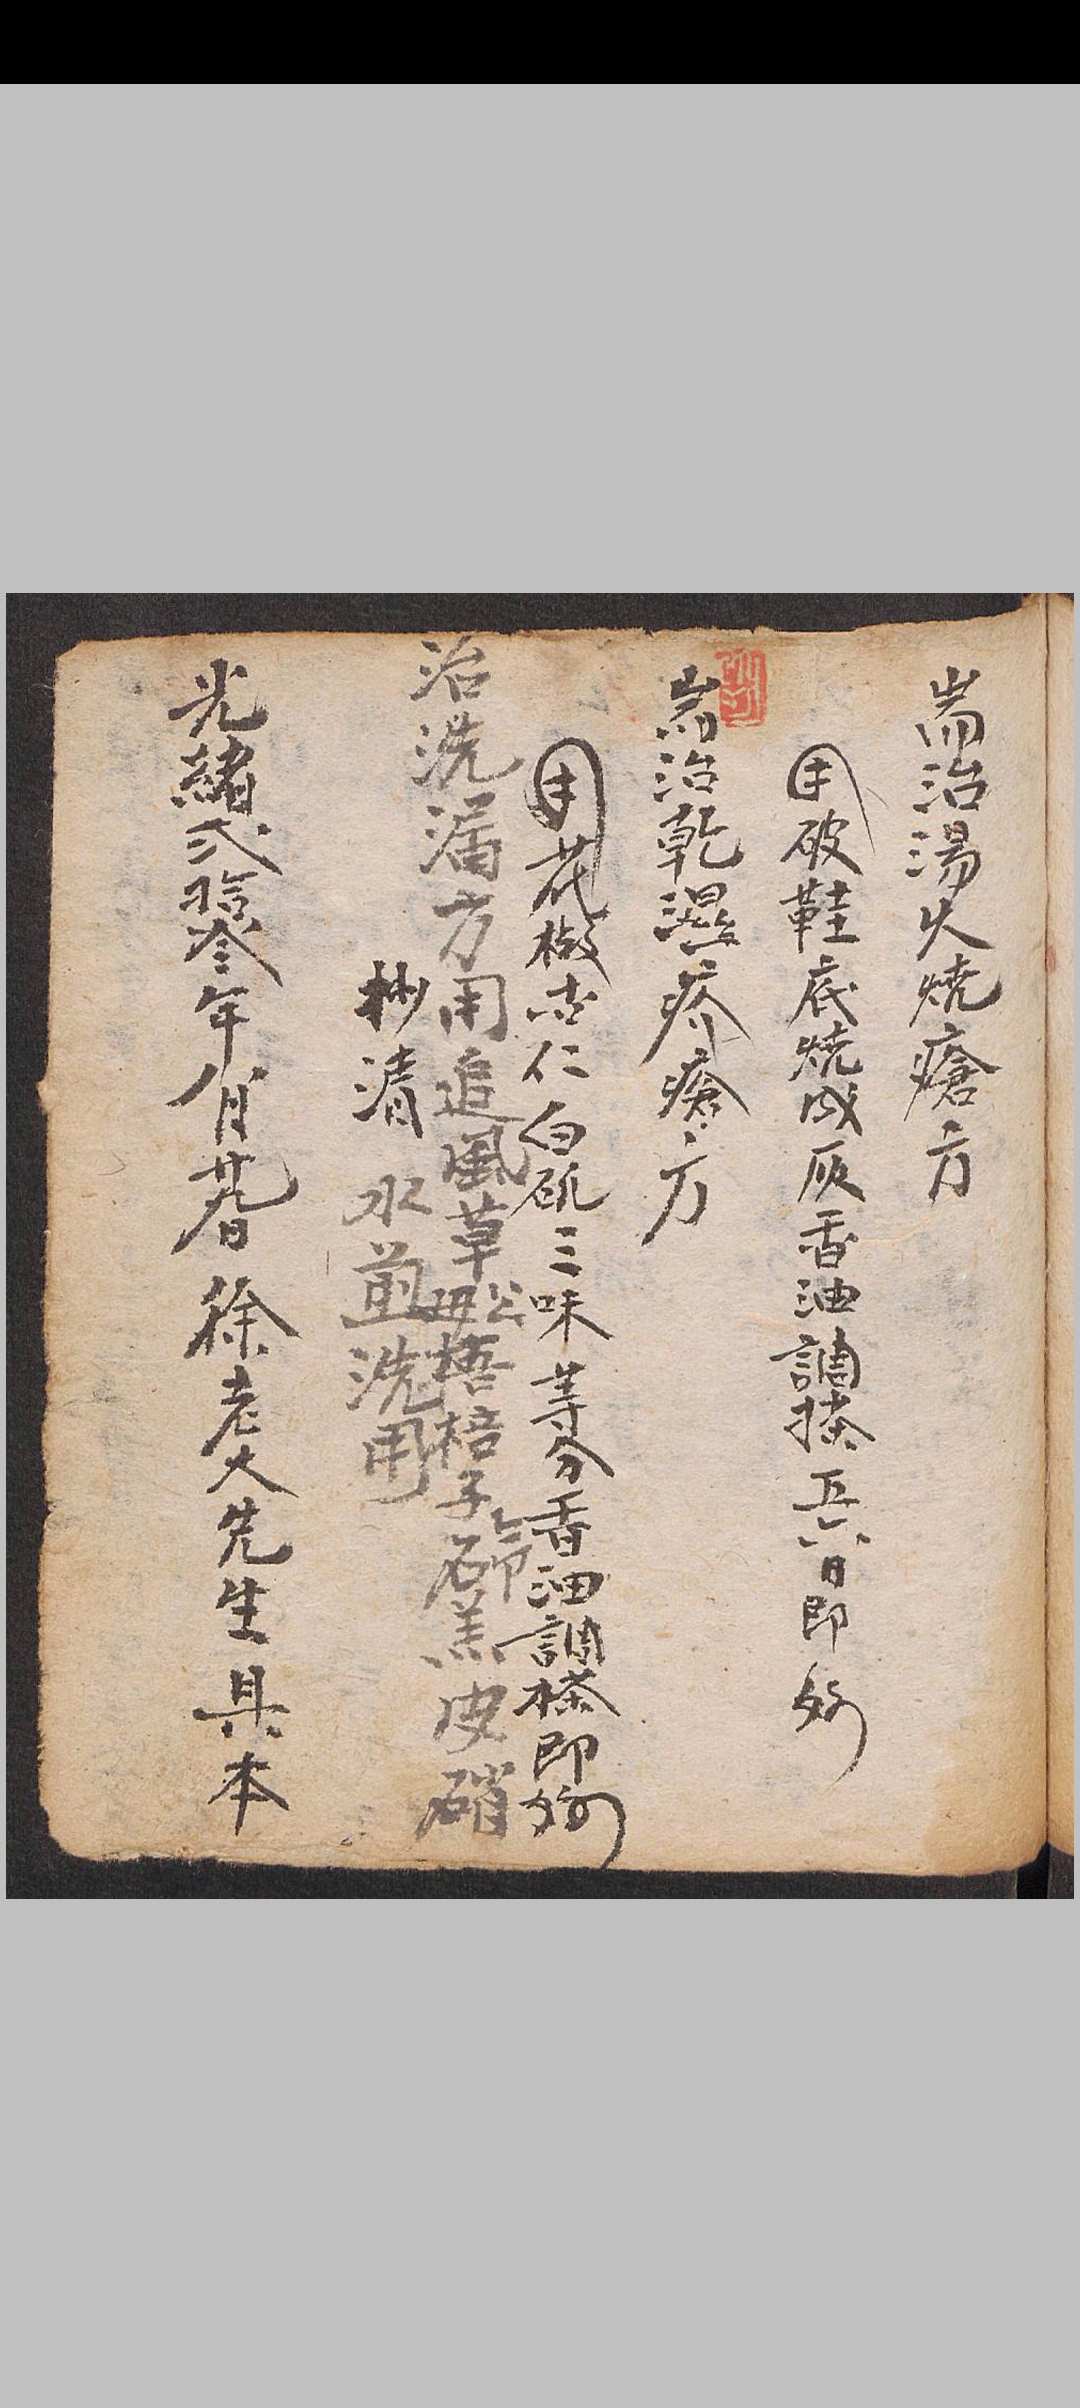 耑治湯火燒瘡方
用破鞋底燒成灰香油調搽五六日即好
耑治乾濕疥瘡方
用花椒杏仁白矾三味等分香油調搽即好
治洗漏方用追風草公母梧棓子石羔皮硝
抄清水煎洗用
光緒弍拾叁年八月廿日徐老大先生具本